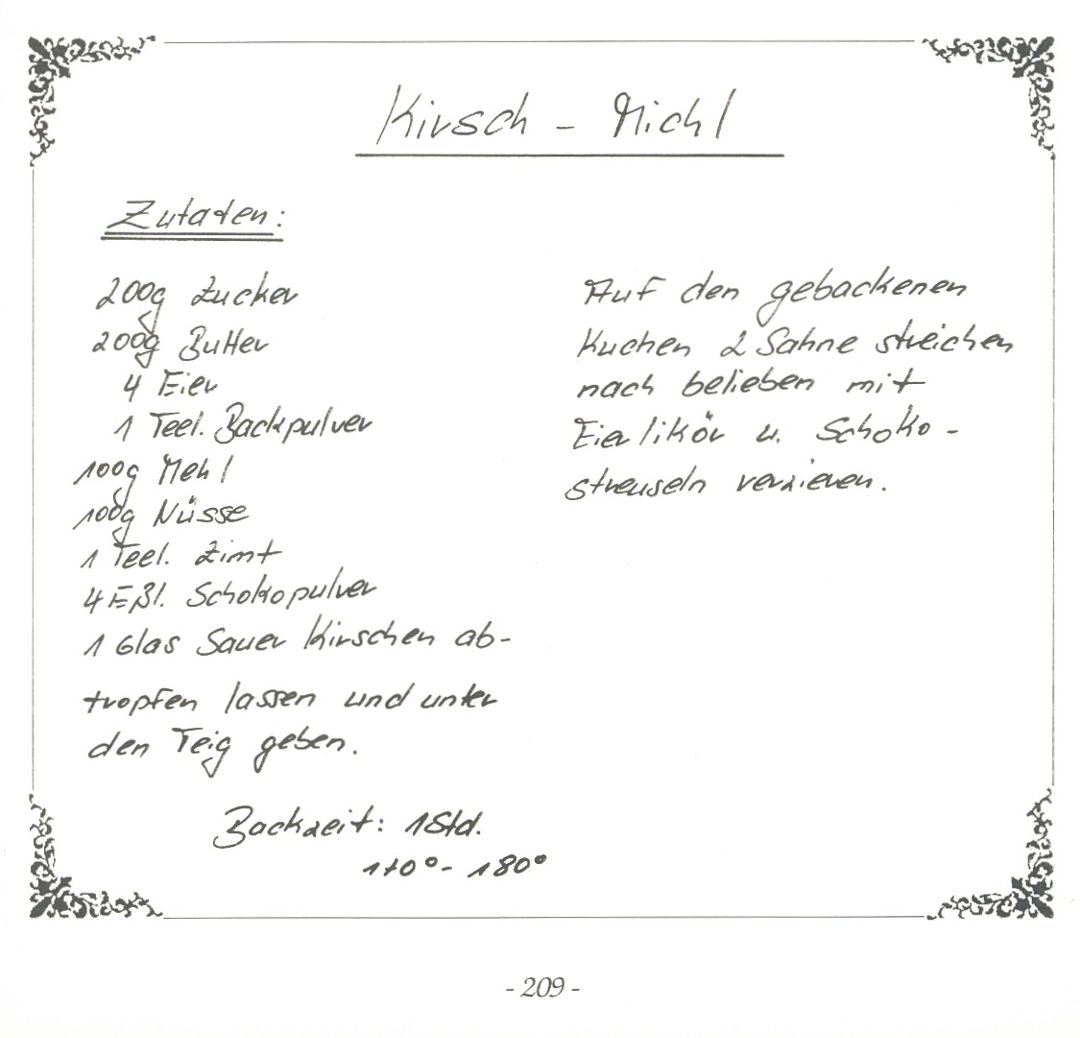 Kirsch - Michl
Zutaten:
200g Zucker
200g Butter
4 Eier
1 Teel. Backpulver
100g Mehl
100g Nüsse
1 Teel. Zimt
4 Eßl. Schokopulver
1 Glas Sauer Kirschen ab-
tropfen lassen und unter
den Teig geben.
Backzeit: 1Std.
170°- 180°
Auf den gebackenen
Kuchen 2 Sahne streichen
nach belieben mit
Eierlikör u. Schoko-
streuseln verzieren.
- 209 -